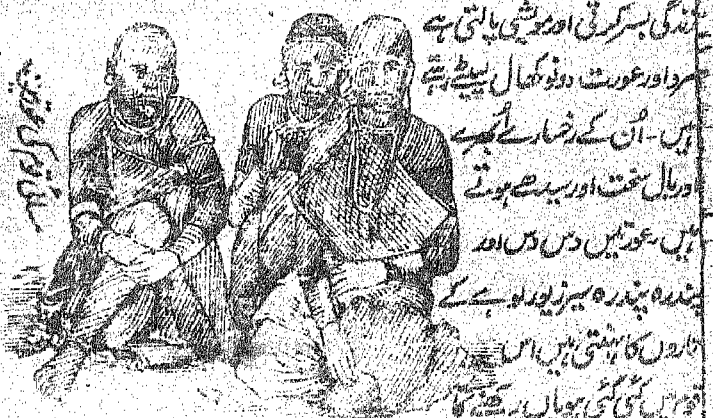 زندگی بسر کرتی اور مویشی پالتی ہے
مرد اور عورت دونو کھال لپیٹے رہتے
ہیں۔ اُن کے رخسارے اُبھرے
اور بال سخت اور سیدھے ہوتے
ہیں۔ عورتیں دس دس اور
پندرہ پندرہ سیر زیور لوہے کے
تاروں کا پہنتی ہیں اس
قوم میں کئی کئی بیویاں رکھنے کا
کی عورتیں